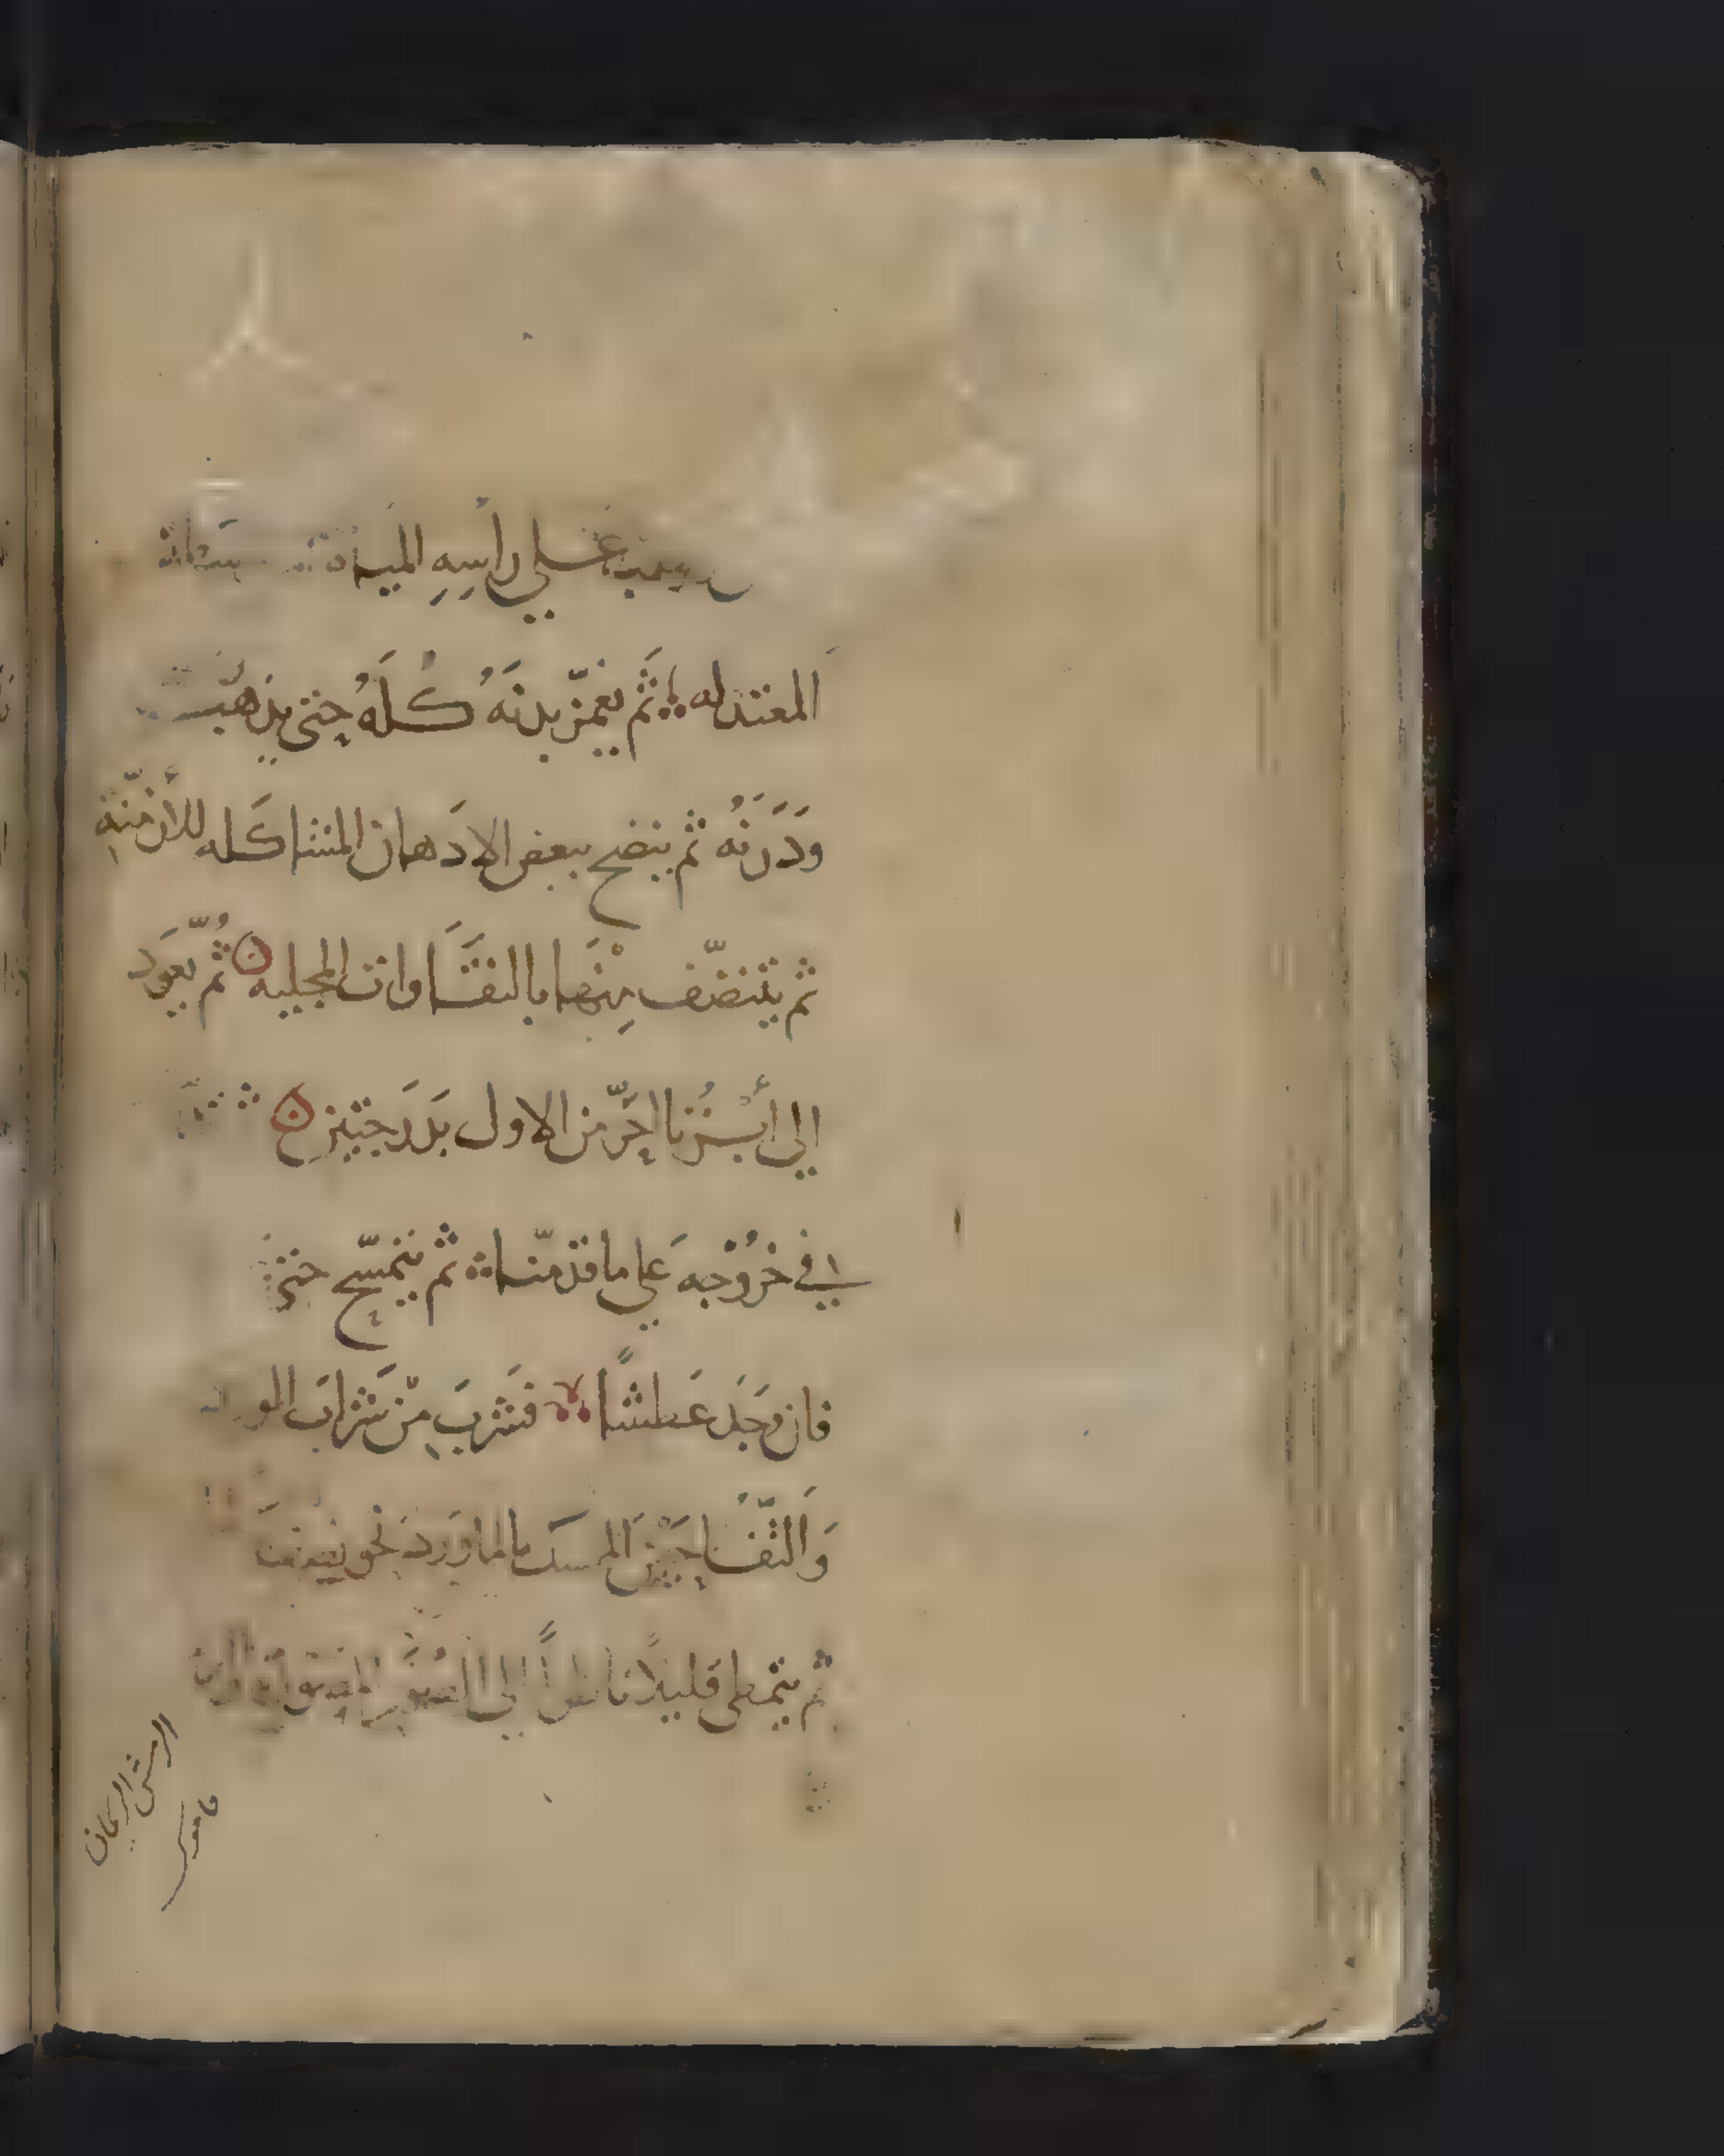 على رأسِهِ المياه
المعتدله ثَم يغمّز بدنَهُ كُلَهُ حتى يذهَب
ودَرَنُه ثم ينضح ببعض الادَهان المشاكَله للأزمنةِ
ثم يتنضّف مِنْهَا بالنقَاوات المجليه ثُمّ يعَود
إلى أبْزُنا احَرّ من الاول بَدَرَجتين
في خرُوْجه عَلي ما قدمّنا ثم يتمسّح حتى
فان وَجَد عَطشًا فشَربَ مِنْ شَرابَ
وَالتّفُاحَيْن المَمسك بالماوَرد نحو
ثم يتمطى قليلًا إلى